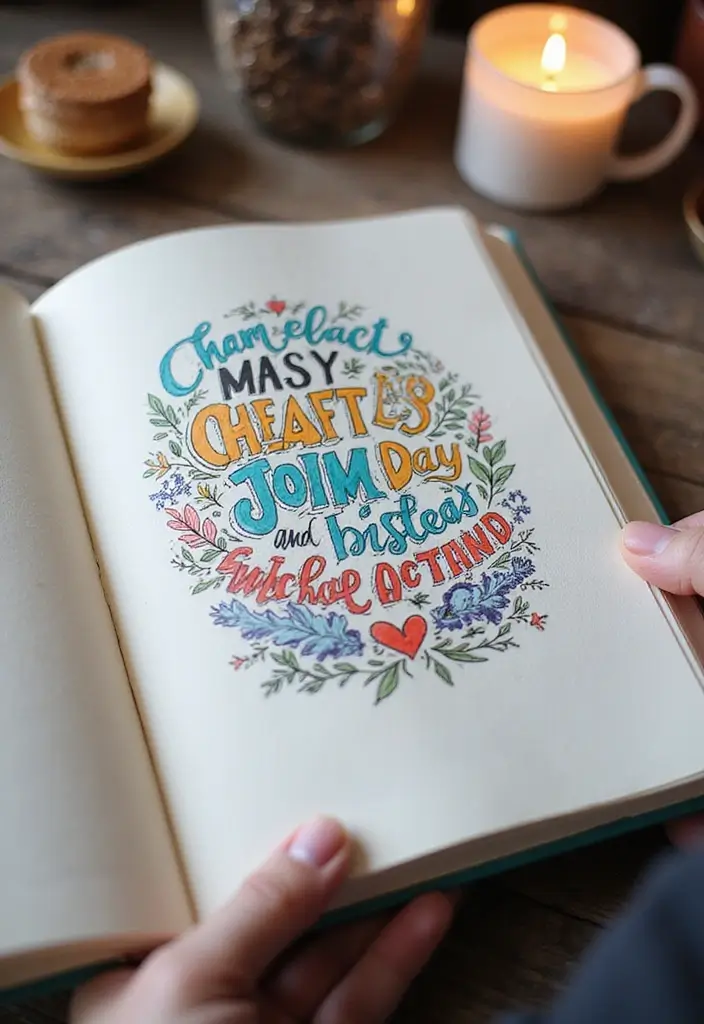 Chamelact
MASY
CHEAFTLS
JOIM Day
and bisleas
ACTAND